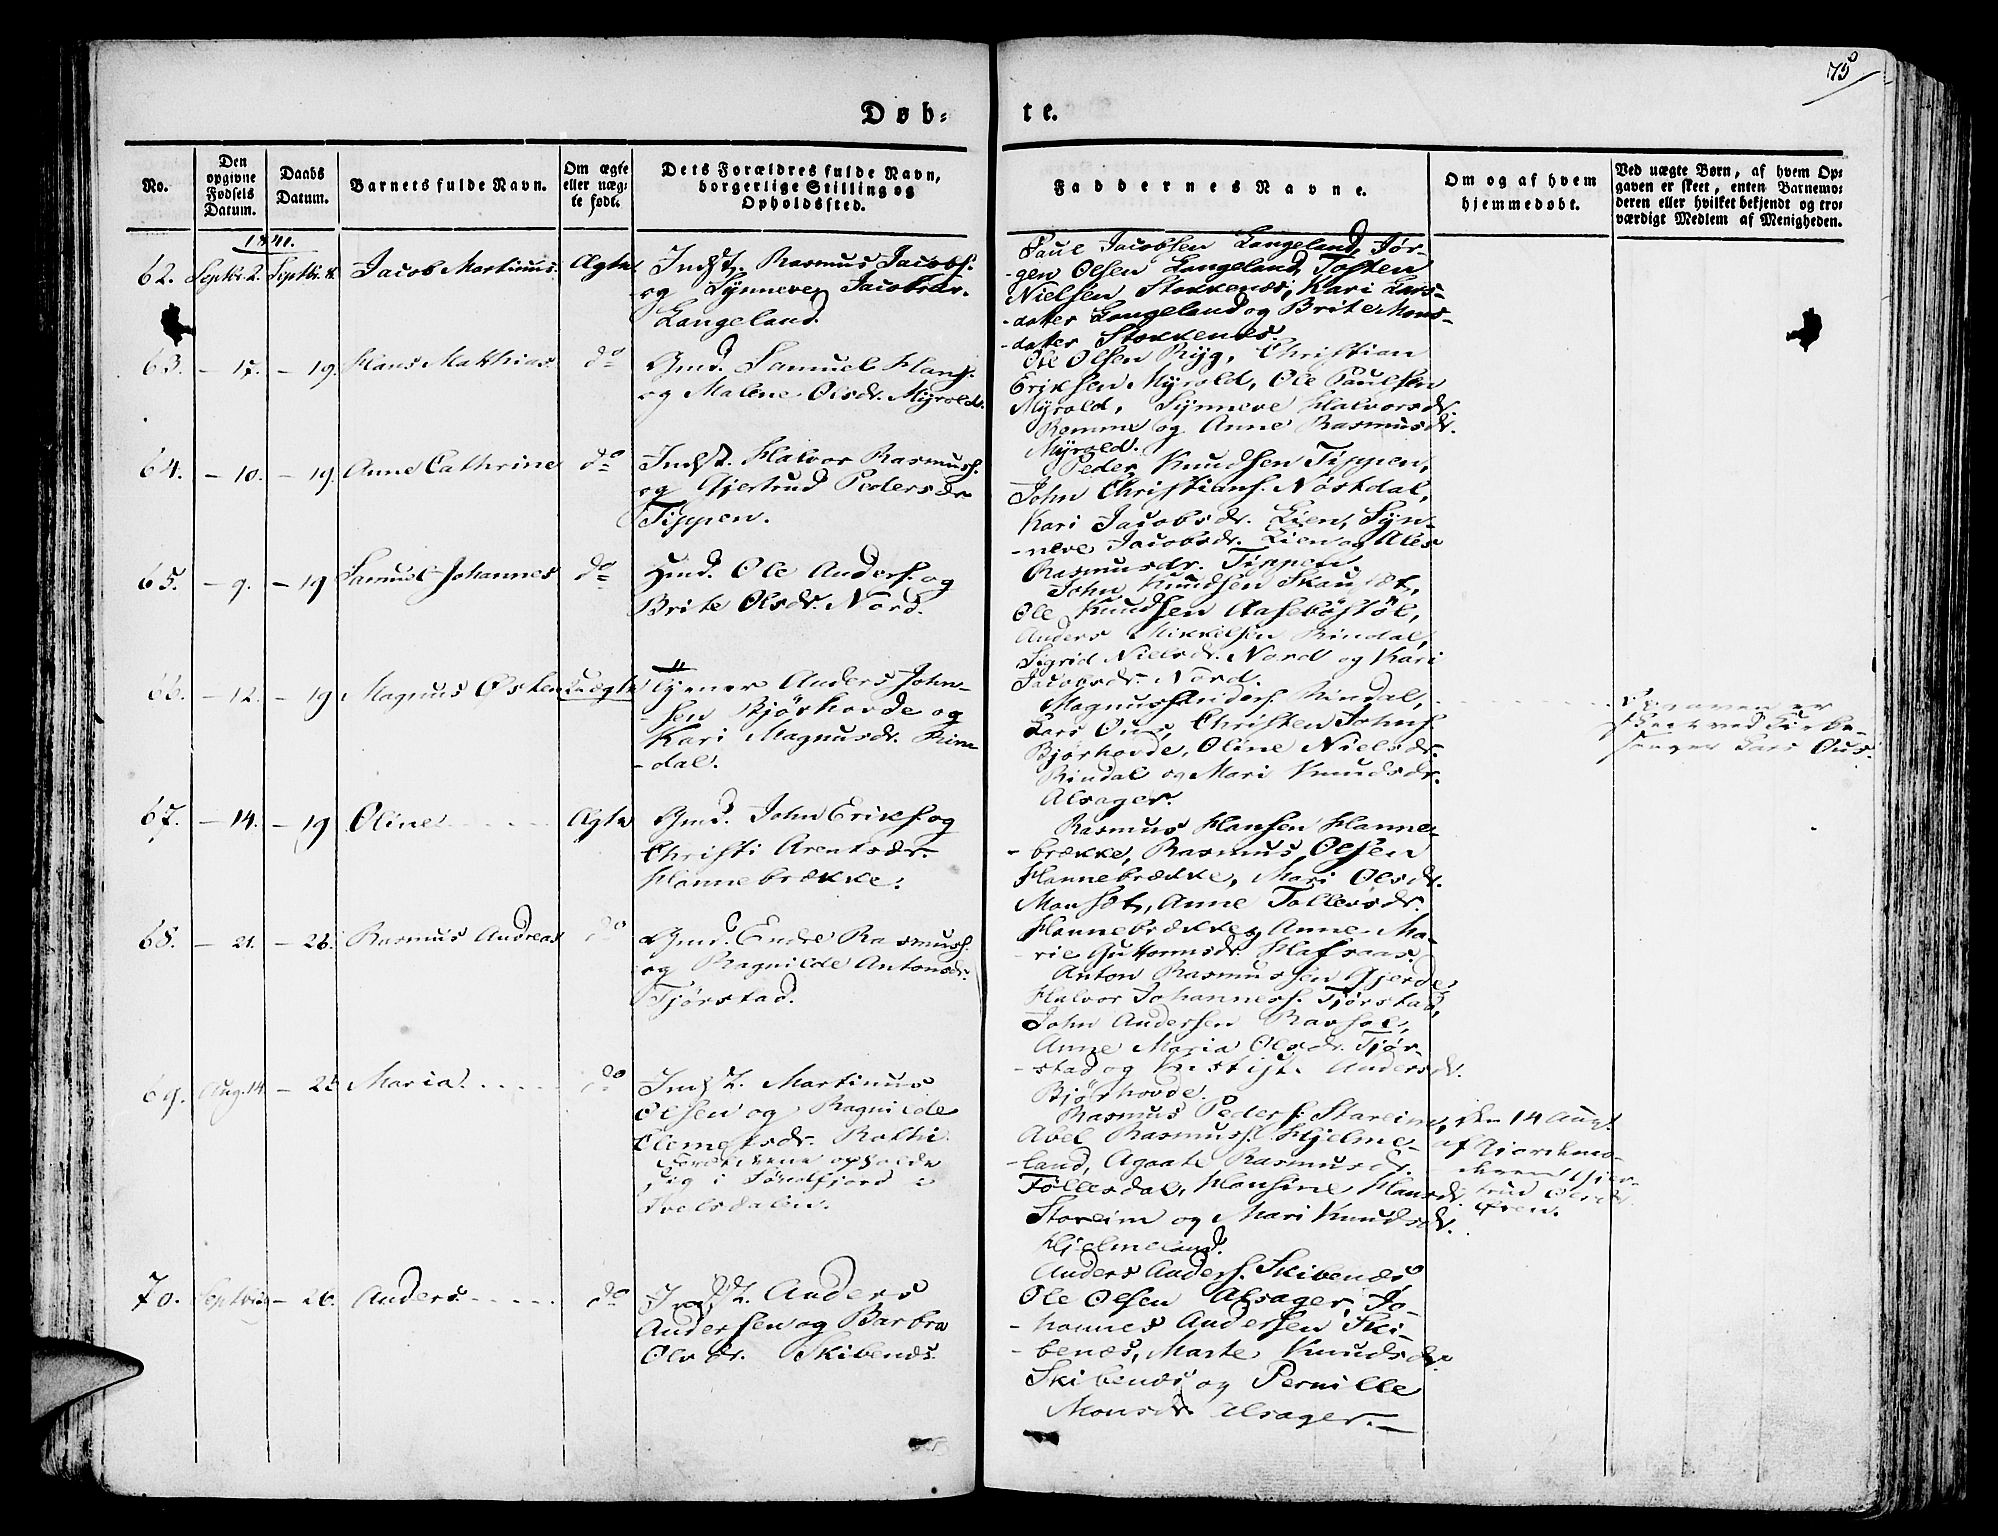 75
Døb-
te.
No.
Den opgivne Fødsels Datum.
Daabs Datum.
Barnets fulde Navn.
Om ægte eller uægte født.
Dets Forældres fulde Navn, borgerlige Stilling og Opholdssted.
Faddernes Navne.
Om og af hvem hjemmedøbt.
Ved uægte Børn, af hvem Opgaven er skeet, enten Barnemoderen eller hvilket bekjendt og troværdigt Medlem af Menigheden.
1841.
62. Septbr. 2. Septbr. Jacob Martinus. Ægte
Indst. Rasmus Jacobs.
og Synneve Jacobsdr.
Langeland.
Paul Jacobsen Langeland, Jør-
gen Olsen Langeland, Tosten
Nielsen Stokkenæs, Kari Lars-
datter Langeland og Brite Mons-
datter Stokkenes.
63. - 17. - 19. Hans Mathias. do
Gmd. Samuel Hans.
og Malene Olsdr. Myrold.
Ole Olsen Ryg, Christian
Eriksen Myrold, Ole Paulsen
Myrold, Synneve Halvorsdr.
Romme og Anne Rasmusdr.
Myrold.
64. - 10. - 19. Anne Cathrine do
Indst. Halvor Rasmuss.
og Gjertrud Pedersdr
Tippen.
Peder Knudsen Tippen,
John Christians. Nøstdal,
Kari Jacobsdr. Lien, Syn-
neve Jacobsdr. Lien og Ales
Rasmusdr. Tippen.
65. - 9. - 19 Samuel Johannes do
Hmd. Ole Anders. og
Brite Olsdr. Nord.
John Knudsen Skaudæt,
Ole Knudsen Aasebøstøl,
Anders Mikkelsen Rindal,
Sigrid Nielsdr. Nord og Kari
Jacobsdr. Nord.
66. - 12. - 19 Magnus Østen Uægte
Tjener Anders John-
sen Bjørhovde og
Kari Magnusdr. Rin
dal.
Magnus Anders. Rindal,
Lars Ous, Christen Johns.
Bjørhovde, Oline Nielsdr.
Rindal og Mari Knudsdr.
Alsager.
Opgaven er
skeet ved Kirkesanger Lars Ous.
67. - 14. - 19 Oline Ægte
Gmd. John Eriks. og
Christi Arentsdr.
Hannebrække.
Rasmus Hansen Hanne-
brække, Rasmus Olsen
Hannebrække, Mari Olsdr.
Monsæt, Anne Tollevsdr.
Hannebrække, Anne Ma-
rie Guttormsdr. Hafsaas.
68. - 21. - 26. Rasmus Andreas do
Gmd. Endre Rasmuss.
og Ragnilde Antonsdr.
Tjørstad.
Anton Rasmussen Gjerde,
Halvor Johanness. Tjørstad,
John Andersen
Anne Maria Olsdr. Tjør-
stad og Andersdr.
Bjørhovde.
69. Aug. 14 - 25 Maria. do
Indst. Martinus
Olsen og Ragnilde
Clemetsdr.
Forældrene opholde
sig i Søndfjord i
Rasmus Peders. Storeim,
Avel Rasmuss. Hjelme-
land, Agaate Rasmusdr.
Føllesdal, Hansine Hansdr.
Storeim og Mari Knudsdr.
Hjelmeland.
den 14 Aug.
af Gjordemo-
deren Gjer-
trud Olsdr
Øren.
70. Septbr. - 26. Anders. do
Indst. Anders
Andersen og Barbra
Olsdr. Skibenæs.
Anders Anders. Skibenæs
Ole Olsen Alsager, Jo-
hannes Andersen Ski-
benæs, Marte Knudsdr.
Skibenæs og Pernille
Monsdr. Alsager.